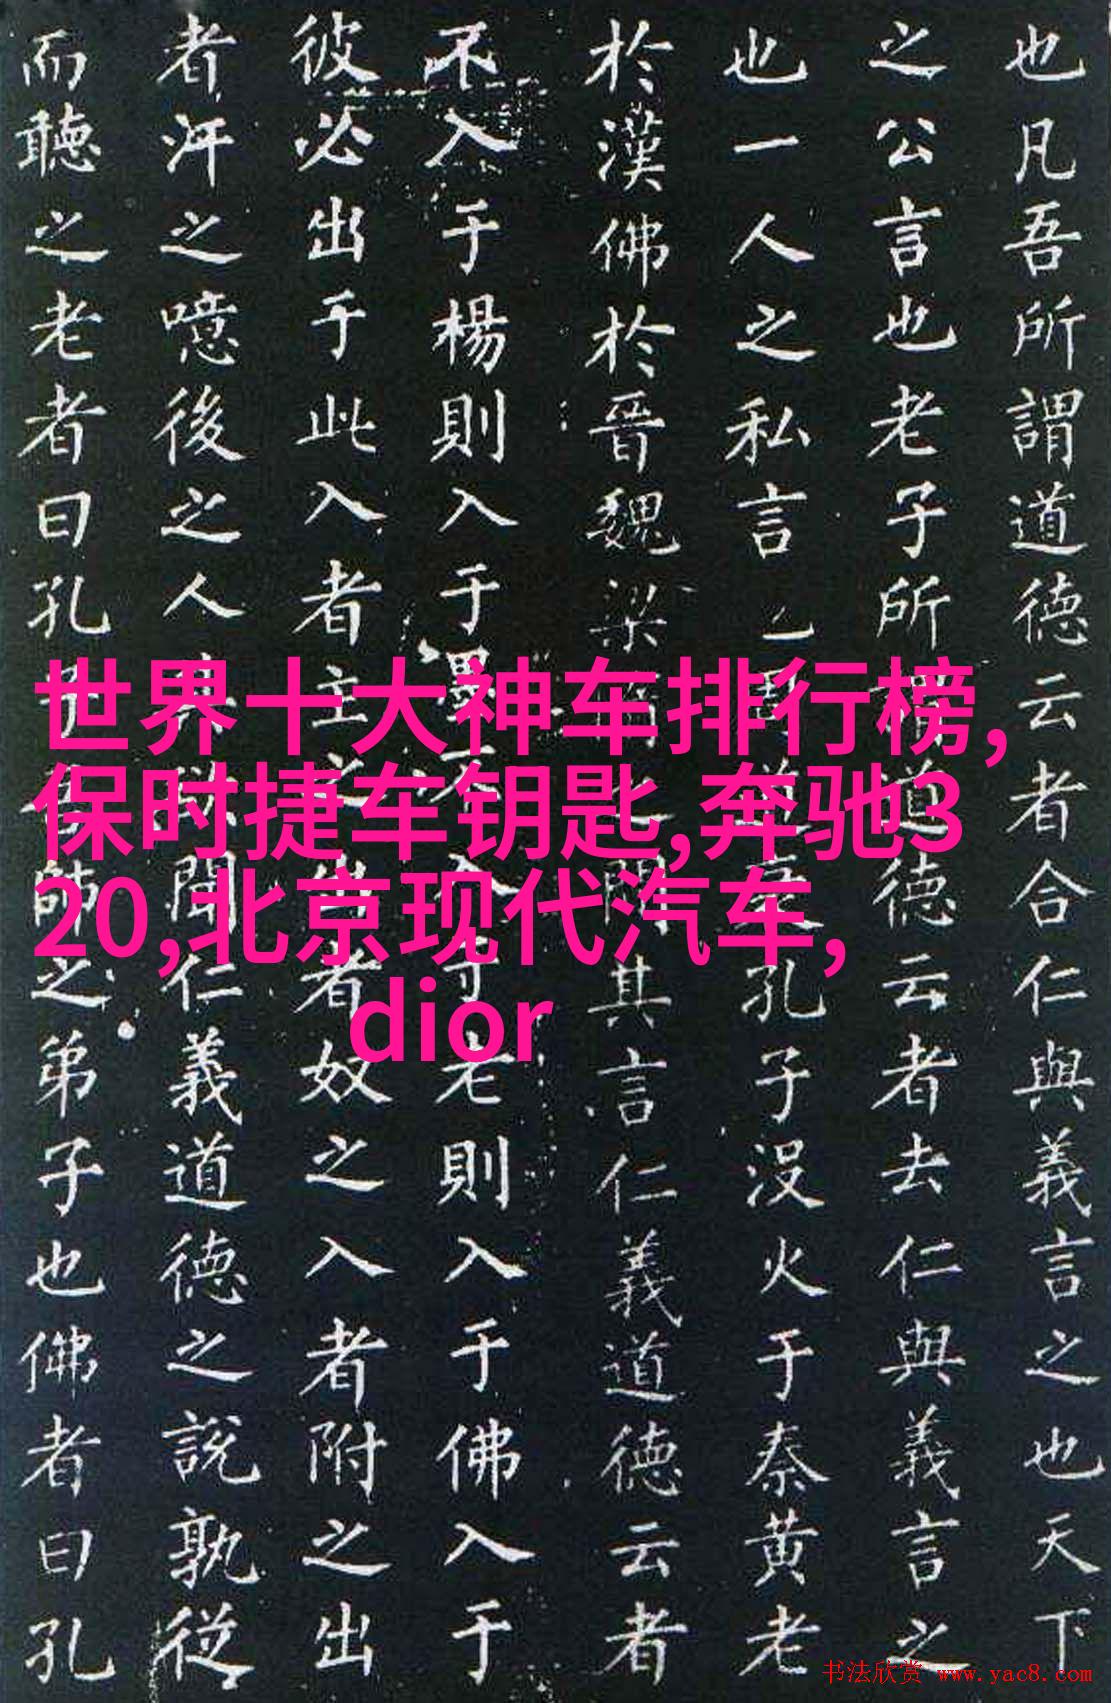 也凡吾所謂道德云者合仁與義言之也天下
之公言也老子所謂道德云者去仁與義言之
也一人之私言也周道衰孔子没火于秦黄老
於漢佛於晉魏梁隋之間其言仁義道德云者
不入于楊則入于墨不入于老則入于佛入于
彼必出于此入者主之出者奴之入者附之出
者汙之噫後之人其欲聞仁義道德之說孰從
而聽之老者曰孔子吾師之弟子也佛者曰孔
世界十大神车排行榜,
保时捷车钥匙,奔驰3
20,北京现代汽车,
dior
书法欣赏 www.yac8.com